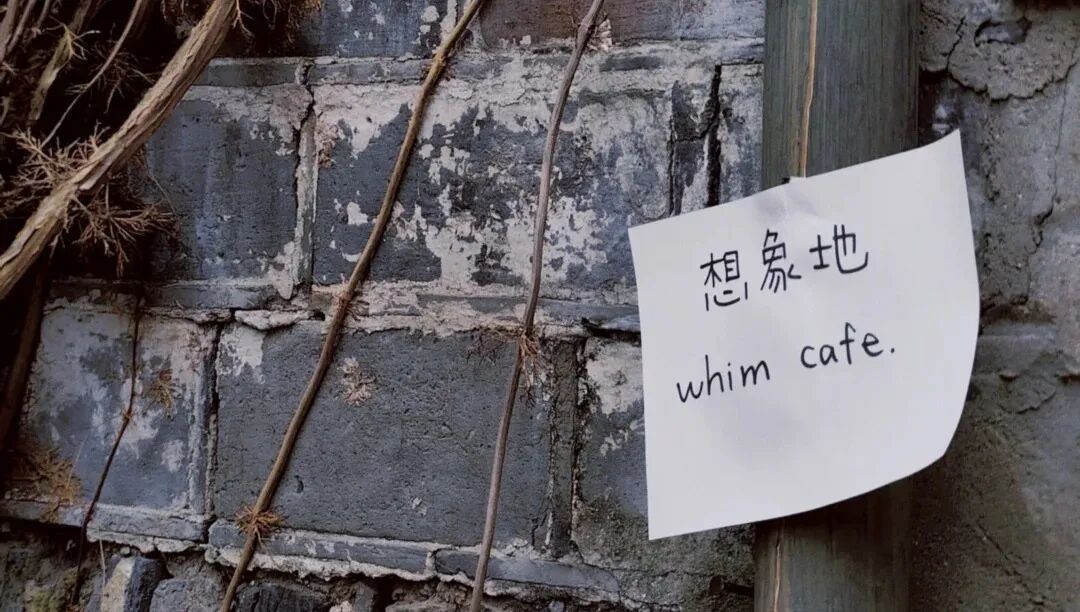 想象地
whim cafe.